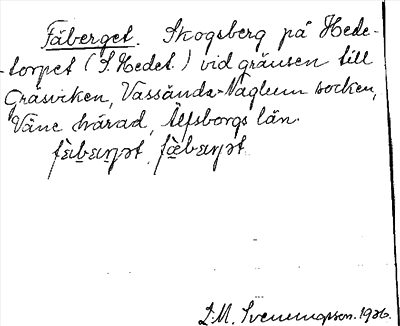 Fäberget. Skogsberg på Hede-
torpet (S. Hedet.) vid gränsen till
Gräsviken, Vassända-Naglum socken,
Väne härad, Älfsborgs län.
L. M. Svenungsson. 1926.